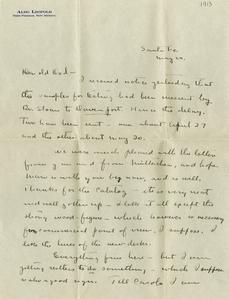 1913
ALDO LEOPOLD
Santa Fe
May 20.
Dear old Dad—
I received notice yesterday that
the samples for Ealing had been missent by
Dr. Sloan to Davenport. Hence the delay.
Two have been sent – one about April 27
and the other about May 20.
We were much pleased with the letters
from you and from Mother, and hope
is with you by now, and is well.
Thanks for the Catalog – its very neat
and well gotten up – I like it all except the
– which however is necessary
from commercial point of view, I suppose. I
like the lines of the new desks.
Everything fine here – but I am
getting restless to do something, – which I suppose
is a good sign. Tell Carolo I am